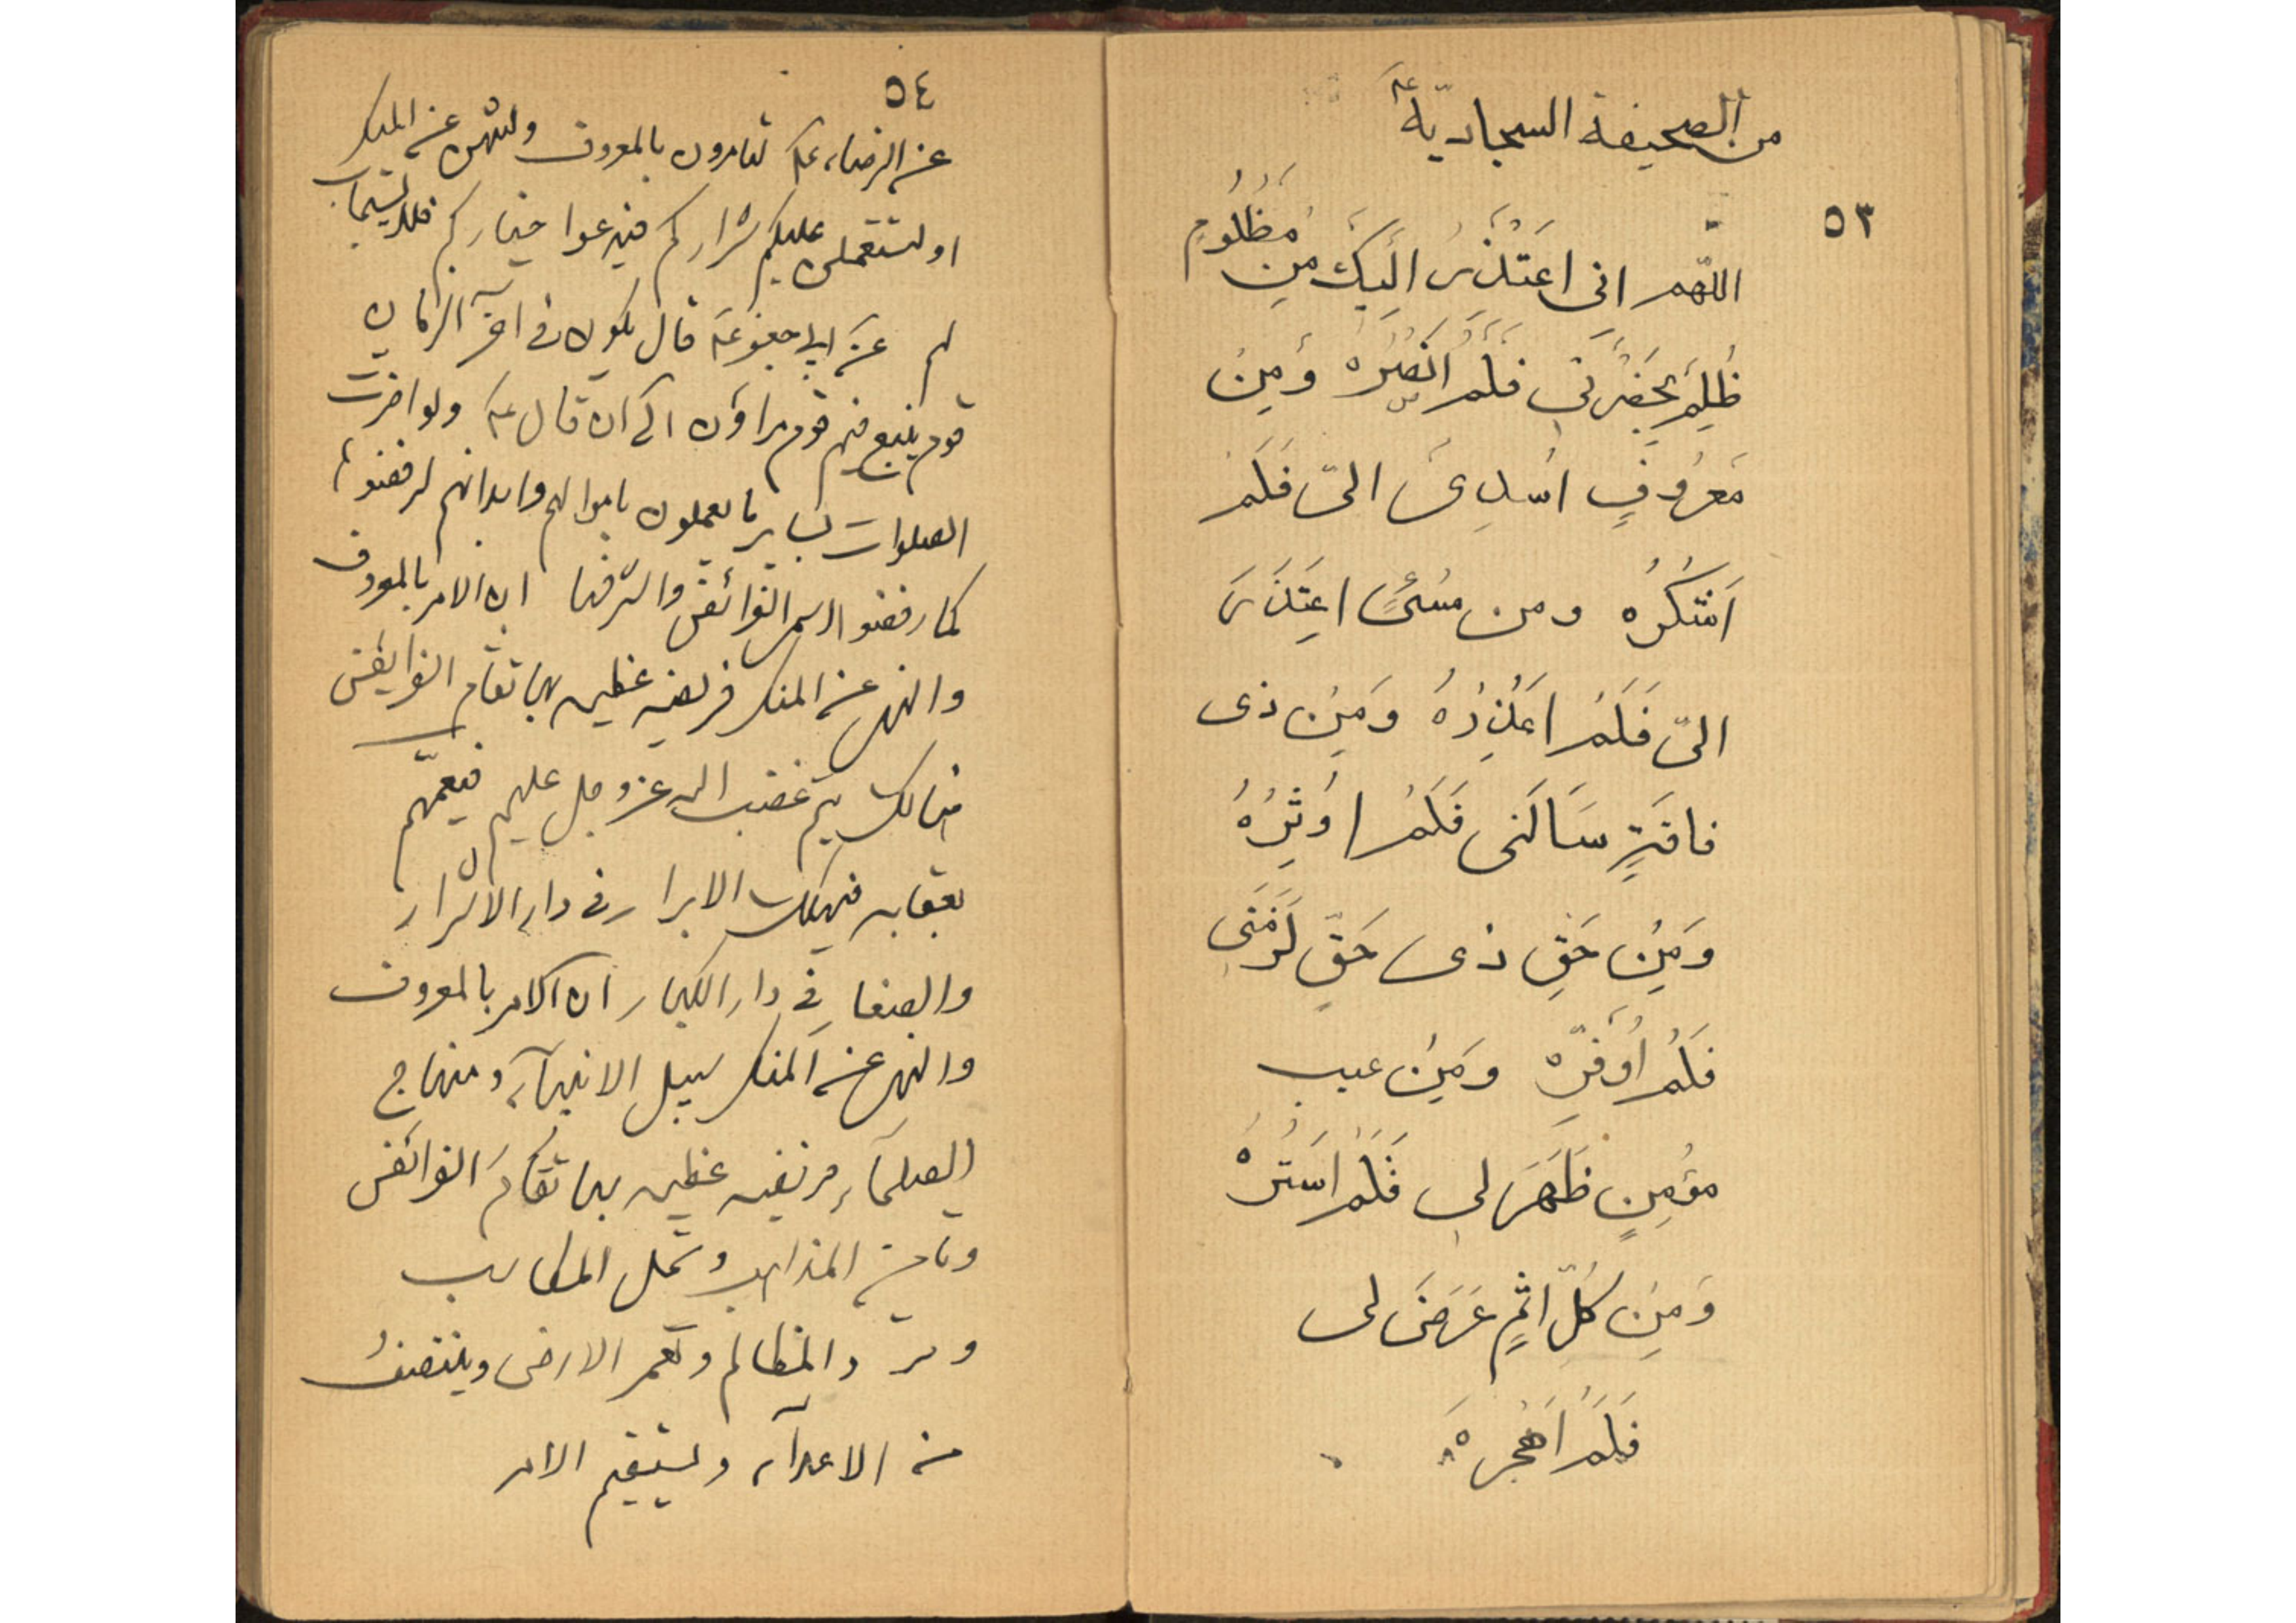 من الصحيفة السجاديّة ع
٥٣
اللّهم انى اعتَذرُ الَيكَ مِن مَظلُومٍ
ظُلِمَ بِحَضْرَتى فَلَمْ انصُرْهُ وَمِنْ
مَعرُوفٍ اُسْدِىَ الىّ فَلَمْ
اَشكُرْهُ ومن مسىءٍ اعتَذَرَ
الىّ فَلَمْ اَعْذِرْهُ وَمِنْ ذى
فاقَةٍ سَاَلَنى فَلَمْ اُوثِرْهُ
وَمِنْ حَقِّ ذى حَقٍّ لَزَمَنى
فَلَمْ اُوَفِّرْهُ وَمِنْ عيب
مؤمِنٍ ظَهَرَ لى فَلَمْ اَستُرْهُ
وَمِنْ كُلِّ اثمٍ عَرَضَ لى
فَلَمْ اَهْجُرْهُ
٥٤
عن الرضا ع لتامرون بالمعروف ولتنهن عن المنكر
او ليستعملن عليكم شراركم فيدعوا خياركم فلا يستجاب
لهم عن ابى جعفر ع قال يكون فى اخر الزمان
قوم يتبع فيهم قوم مراؤن الى ان قال ع ولو اضرت
الصلوات بساير ما يعملون باموالهم وابدانهم لرفضوها
كما رفضوا اسمى الفرائض واشرفها ان الامر بالمعروف
والنهى عن المنكر فريضه عظيمه بها تقام الفرايض
هنالك يتم غضب الله عز وجل عليهم فيعمّهم
بعقابه فيهلك الابرار فى دار الاشرار
والصغار فى دار الكبار ان الامر بالمعروف
والنهى عن المنكر سبيل الانبيآء ومنهاج
الصلحآء فريضه عظيمه بها تقام الفرائض
وتامن المذاهب وتحل المكاسب
وتردّ المظالم وتعمر الارض وينتصف
من الاعدآء ويستقيم الامر